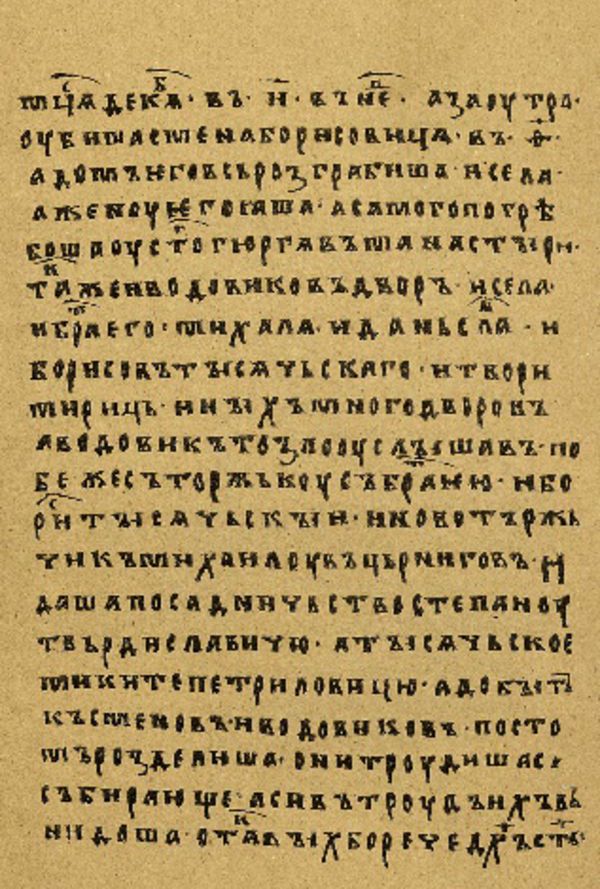 мцⷭ҇а декⷡ҇а · въ · н҃ · въ нⷣе · а заоутра ·
оубиша смена борисовиця · въ · ѳ҃ ·
а домъ ѥго всь розграбиша · и села ·
а женоу ѥго ꙗша · а самого погрѣ
боша оу с҃того гюргꙗ въ манастыри ·
такⷤе и водовиковъ дворъ · и села
и браⷮ ѥго · михала · и даньслаⷡ · и
борисовъ тысѧчьскаго · и твори
мириць · иныхъ много дворовъ
а водовикъ то зло оуслышавъ · по
беже с тържькоу съ браⷮѥю · и бо
риⷭ тысѧчьскыи · и новотържь
чи къ михаилоу въ църниговъ · и
даша посадничьство степаноу
твьрдиславичю · а тысѧчьскоѥ
миките петриловицю · а добытъ
къ сменовъ и водовиковъ · по сто
мъ розделиша · они троудишасѧ
събирающе · а си въ троудъ ихъ въ
нидоша · о таⷦвыхъ бо рече д҃хъ с҃ты